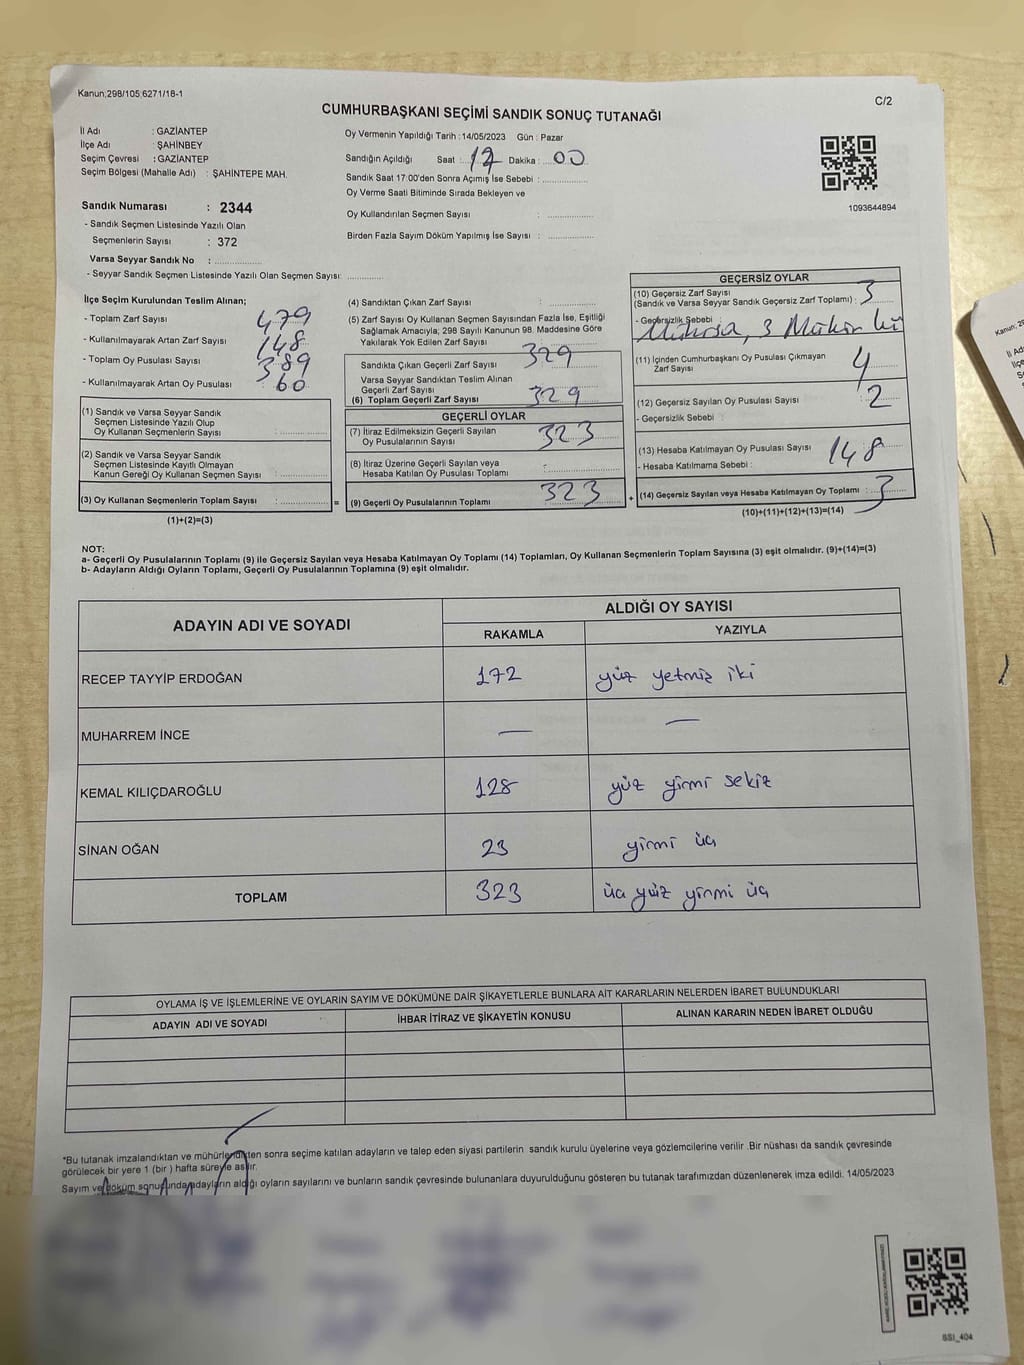 Kanun;298/105;6271/18-1
C/2
CUMHURBAŞKANI SEÇİMİ SANDIK SONUÇ TUTANAĞI
İl Adı : GAZİANTEP
İlçe Adı : ŞAHİNBEY
Seçim Çevresi : GAZİANTEP
Seçim Bölgesi (Mahalle Adı) : ŞAHİNTEPE MAH.
Oy Vermenin Yapıldığı Tarih : 14/05/2023 Gün : Pazar
Sandığın Açıldığı Saat : 17 Dakika : 00
Sandık Saat 17:00'den Sonra Açımış İse Sebebi :
Oy Verme Saati Bitiminde Sırada Bekleyen ve
Oy Kullandırılan Seçmen Sayısı :
Birden Fazla Sayım Döküm Yapılmış İse Sayısı :
1093644894
Sandık Numarası : 2344
- Sandık Seçmen Listesinde Yazılı Olan
Seçmenlerin Sayısı : 372
Varsa Seyyar Sandık No :
- Seyyar Sandık Seçmen Listesinde Yazılı Olan Seçmen Sayısı:
İlçe Seçim Kurulundan Teslim Alınan;
- Toplam Zarf Sayısı : 479
- Kullanılmayarak Artan Zarf Sayısı : 148
- Toplam Oy Pusulası Sayısı : 389
- Kullanılmayarak Artan Oy Pusulası : 60
(1) Sandık ve Varsa Seyyar Sandık
Seçmen Listesinde Yazılı Olup
Oy Kullanan Seçmenlerin Sayısı :
(2) Sandık ve Varsa Seyyar Sandık
Seçmen Listesinde Kayıtlı Olmayan
Kanun Gereği Oy Kullanan Seçmen Sayısı :
(3) Oy Kullanan Seçmenlerin Toplam Sayısı : =
(1)+(2)=(3)
(4) Sandıktan Çıkan Zarf Sayısı :
(5) Zarf Sayısı Oy Kullanan Seçmen Sayısından Fazla İse, Eşitliği
Sağlamak Amacıyla; 298 Sayılı Kanunun 98. Maddesine Göre
Yakılarak Yok Edilen Zarf Sayısı :
Sandıkta Çıkan Geçerli Zarf Sayısı : 329
Varsa Seyyar Sandıktan Teslim Alınan
Geçerli Zarf Sayısı :
(6) Toplam Geçerli Zarf Sayısı : 329
GEÇERLİ OYLAR
(7) İtiraz Edilmeksizin Geçerli Sayılan
Oy Pusulalarının Sayısı : 323
(8) İtiraz Üzerine Geçerli Sayılan veya
Hesaba Katılan Oy Pusulası Toplamı :
(9) Geçerli Oy Pusulalarının Toplamı : 323 +
GEÇERSİZ OYLAR
(10) Geçersiz Zarf Sayısı
(Sandık ve Varsa Seyyar Sandık Geçersiz Zarf Toplamı) : 3
- Geçersizlik Sebebi :
(11) İçinden Cumhurbaşkanı Oy Pusulası Çıkmayan
Zarf Sayısı : 4
(12) Geçersiz Sayılan Oy Pusulası Sayısı : 2
- Geçersizlik Sebebi :
(13) Hesaba Katılmayan Oy Pusulası Sayısı : 148
- Hesaba Katılmama Sebebi :
(14) Geçersiz Sayılan veya Hesaba Katılmayan Oy Toplamı : 3
(10)+(11)+(12)+(13)=(14)
NOT:
a- Geçerli Oy Pusulalarının Toplamı (9) ile Geçersiz Sayılan veya Hesaba Katılmayan Oy Toplamı (14) Toplamları, Oy Kullanan Seçmenlerin Toplam Sayısına (3) eşit olmalıdır. (9)+(14)=(3)
b- Adayların Aldığı Oyların Toplamı, Geçerli Oy Pusulalarının Toplamına (9) eşit olmalıdır.
ADAYIN ADI VE SOYADI
ALDIĞI OY SAYISI
RAKAMLA YAZIYLA
RECEP TAYYİP ERDOĞAN 172 yüz yetmiz iki
MUHARREM İNCE — —
KEMAL KILIÇDAROĞLU 128 yüz yirmi sekiz
SİNAN OĞAN 23 yirmi üç
TOPLAM 323 üç yüz yirmi üç
OYLAMA İŞ VE İŞLEMLERİNE VE OYLARIN SAYIM VE DÖKÜMÜNE DAİR ŞİKAYETLERLE BUNLARA AİT KARARLARIN NELERDEN İBARET BULUNDUKLARI
ADAYIN ADI VE SOYADI İHBAR İTİRAZ VE ŞİKAYETİN KONUSU ALINAN KARARIN NEDEN İBARET OLDUĞU
*Bu tutanak imzalandıktan ve mühürlendikten sonra seçime katılan adayların ve talep eden siyasi partilerin sandık kurulu üyelerine veya gözlemcilerine verilir .Bir nüshası da sandık çevresinde
görülecek bir yere 1 (bir ) hafta süreyle asılır.
Sayım ve döküm sonucunda adayların aldığı oyların sayılarını ve bunların sandık çevresinde bulunanlara duyurulduğunu gösteren bu tutanak tarafımızdan düzenlenerek imza edildi. 14/05/2023
SSI_404